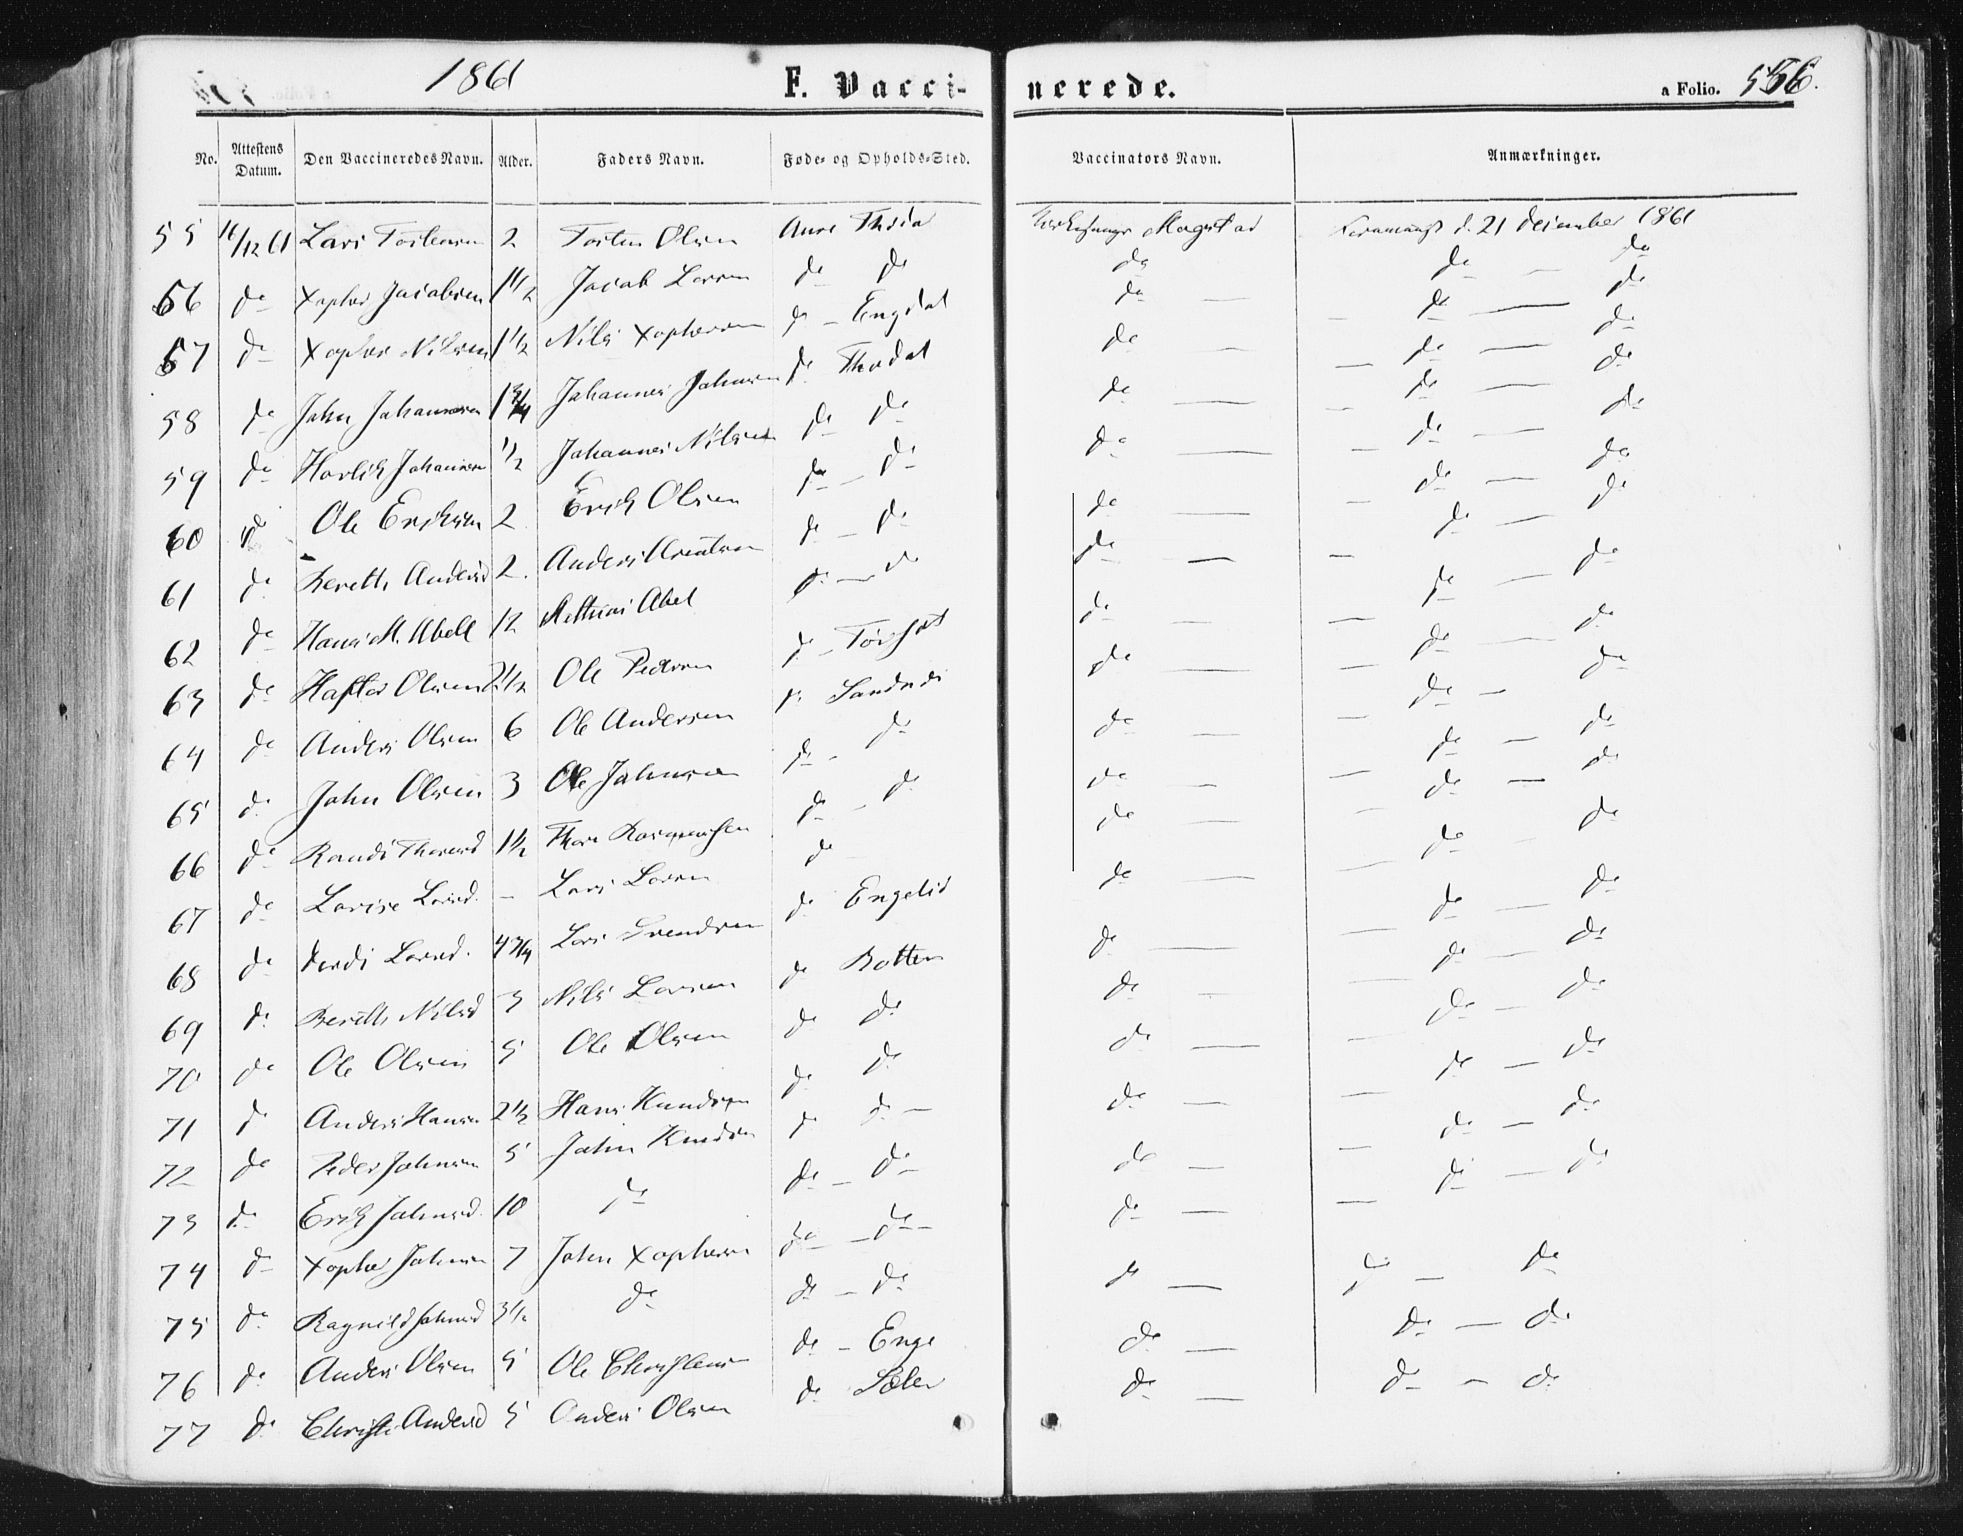 1861 F. Vacci-nerede. a Folio. 556.
No. Attestens Datum. Den Vaccineredes Navn. Alder. Faders Navn. Føde- og Opholds-Sted. Vaccinators Navn. Anmærkninger.
55 16/12 61 Lars Torstensen 2 Torsten Olsen Aure Magstad d. 21 December 1861
56 do Xopher Jacobsen 1 1/2 Jacob Larsen do do do do — do
57 do Xopher Nilsen 1 1/2 Nils Xophersen do — Engdal do — do — do
58 do John Johannesen 1 3/4 Johannes Johnsen do do — do — do
59 do Johannesen 1/2 Johannes Nilsen do do do — do — do
60 do Ole Eriksen 2 Erik Olsen do — do do — do — do
61 do Bereth Andersd 2. Anders Arentsen do — do do — do — do
62 do Hans M. Abell 12 Mathias Abel do — do do — do — do
63 do Olsen 2 1/2 Ole Pedersen do do — do — do
64 do Anders Olsen 6 Ole Andersen do do — do — do
65 do John Olsen 3 Ole Johnsen do — do do — do — do
66 do Randi Thoresd 1 1/2 Thore Rasmussen do — do do — do — do
67 do Larsd. — Lars Larsen do do — do — do
68 do Larsd. 4 3/4 Lars Svendsen do do — do — do
69 do Bereth Nilsd 3 Nils Larsen do Botten do — do — do
70 do Ole Olsen 5 Ole Olsen do do do — do — do
71 do Anders Hansen 2 1/2 Hans Knudsen do do do — do — do
72 do Peder Johnsen 5 John Knudsen do do — do — do — do
73 do Erik Johnsd. 10 do do — do do — do — do
74 do Xopher Johnsen 7 John Xophersen do — do — do — do — do
75 do Ragnild Johnsd 3 1/2 do do — do do — do — do
76 do Anders Olsen 5 Ole Christens do — Enge do — do — do
77 do Andersd 5 Anders Olsen do do — do — do